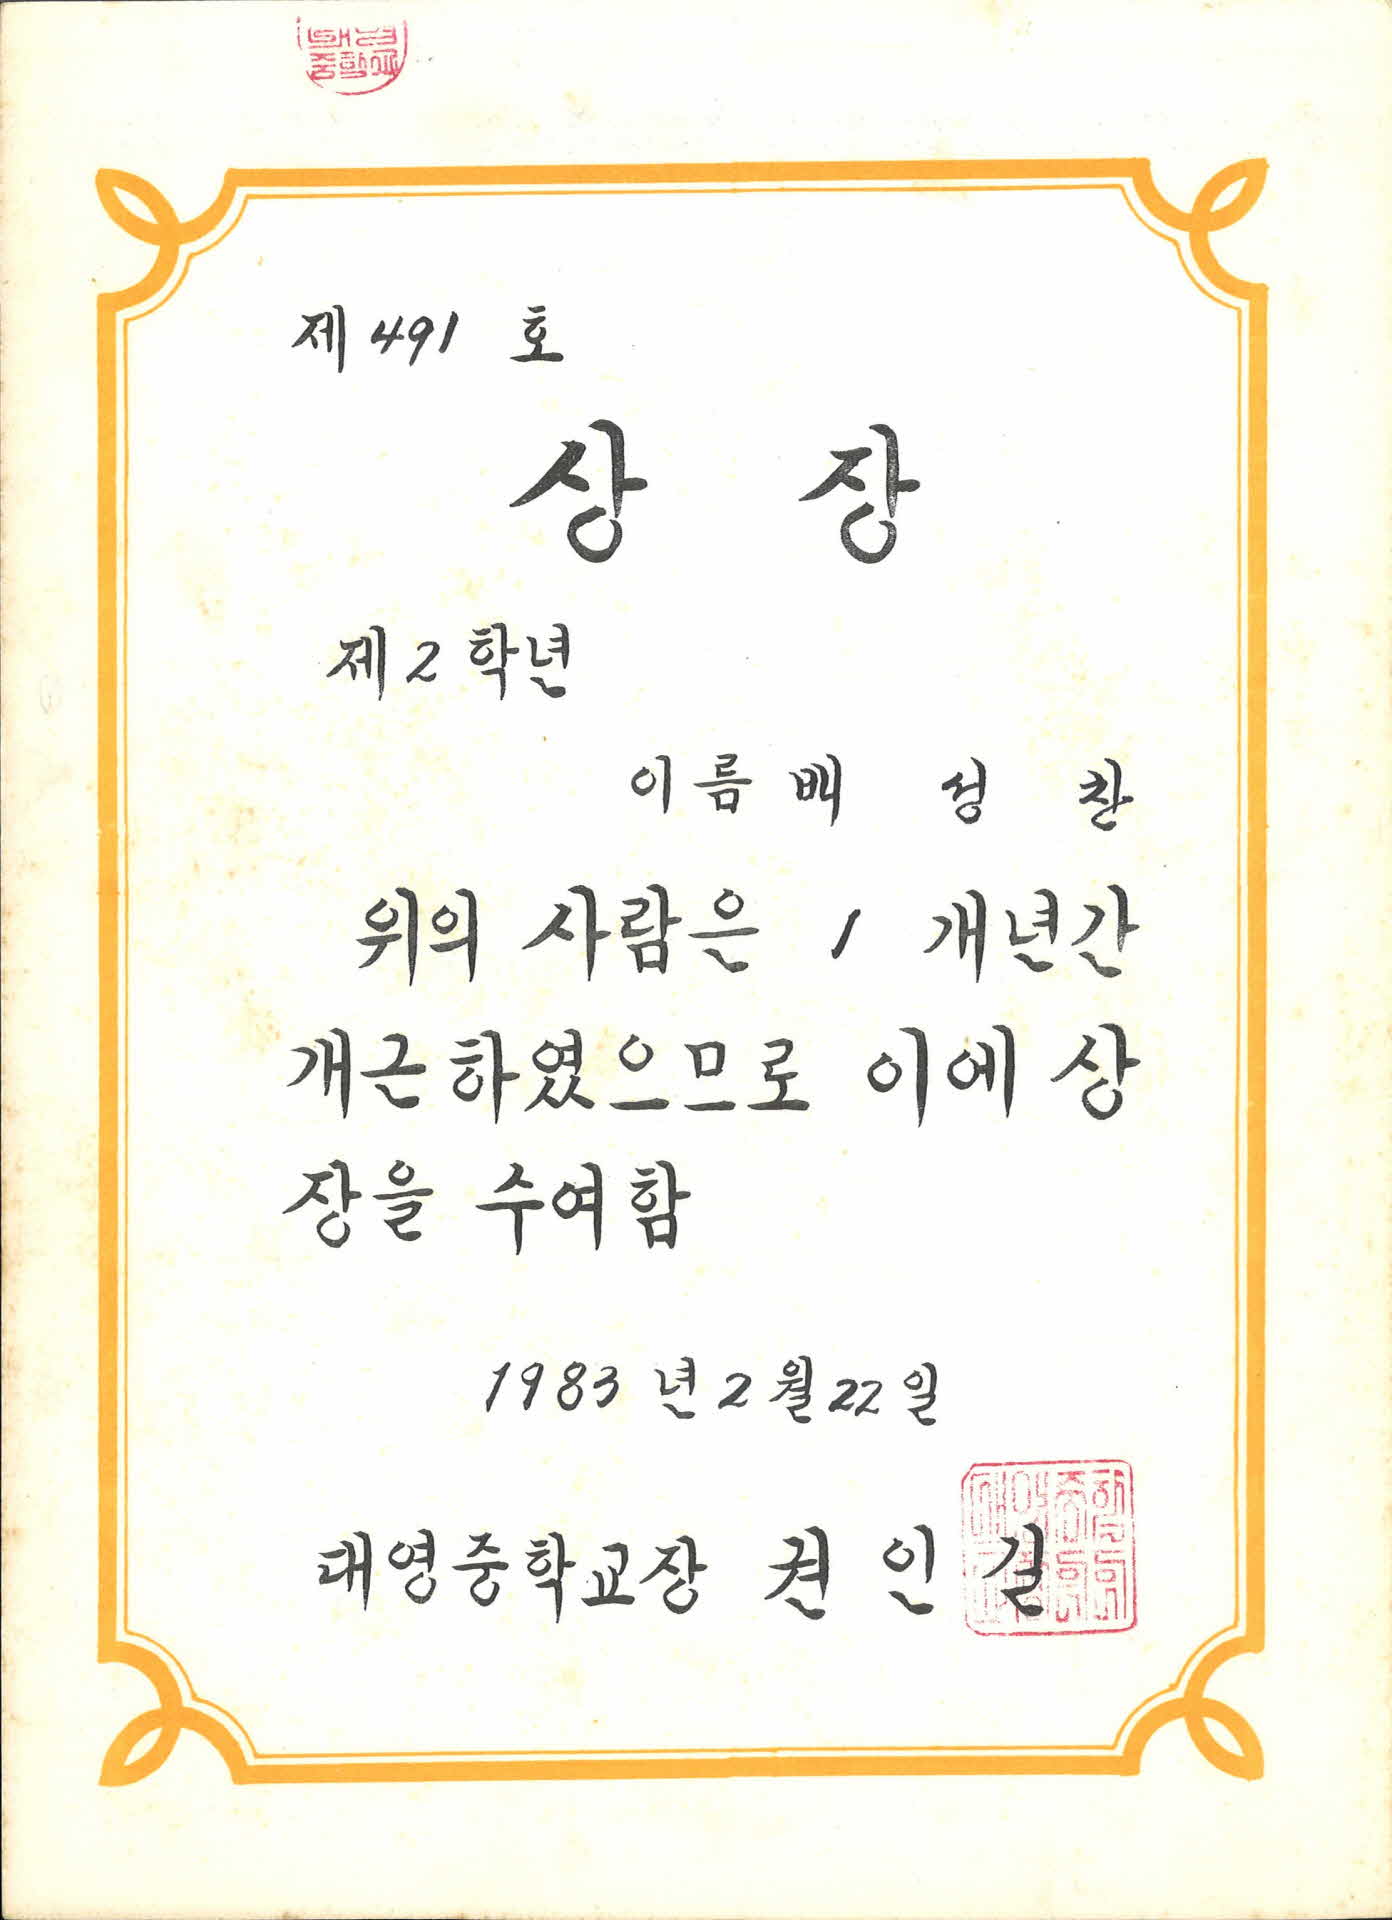 제 491 호
상 장
제 2 학년
이름 배 성 찬
위의 사람은 1 개년간
개근하였으므로 이에 상
장을 수여함
1983 년 2 월 22 일
대영중학교장 권 인 길